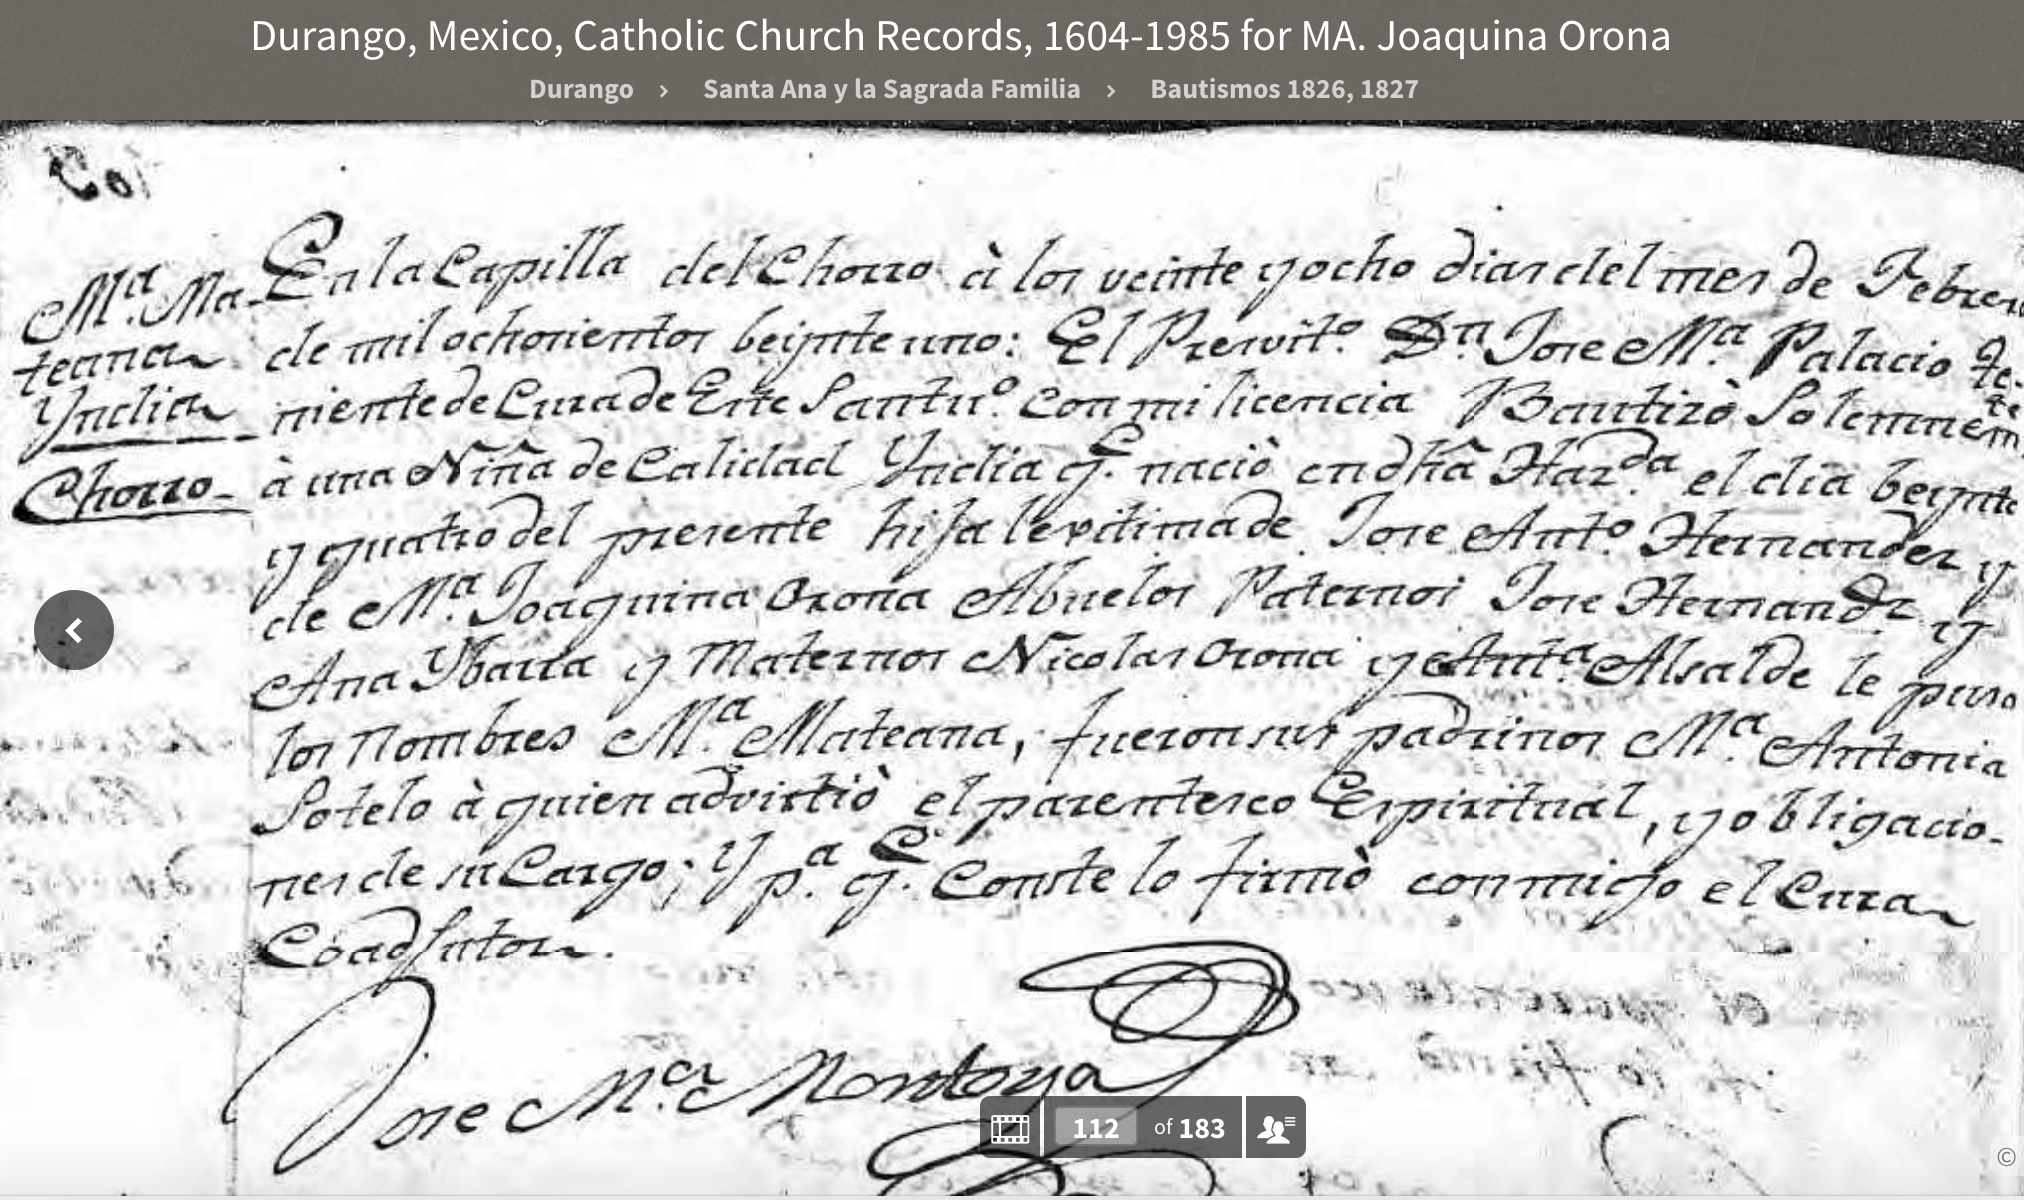 Durango, Mexico, Catholic Church Records, 1604-1985 for MA. Joaquina Orona
Durango › Santa Ana y la Sagrada Familia › Bautismos 1826, 1827
Mª. Ma-
teana
Yndia
Chorro-
En la Capilla del Chorro à los veinte y ocho dias del mes de Febrero
de mil ochosientos beijnte uno: El Presvitº. Dn. Jose Mª. Palacio Te-
niente de Cura de Este Santuº. con mi licencia Bautizò Solemnemte
à una Niña de Calidad Yndia q̃. naciò en dha Hazda. el dia beijnte
y quatro del presente hija levitima de Jose Antº. Hernandez y
de Mª. Joaquina Orona Abuelos Paternos Jose Hernandz y
Ana Ybarra y Maternos Nicolas Orona y Antª. Alsalde le puso
los nombres Mª. Mateana, fueron sus padrinos Mª. Antonia
Sotelo à quien advirtiò el parentesco Espiritual, y obligacio-
nes de su Cargo; y pª. q̃. Conste lo firmò conmigo el Cura
Coadjutor.
Jose Mª. Montoya
112 of 183
©